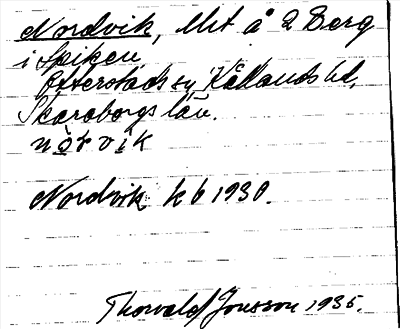 Nordvik, Lht å 2 Berg
i Spiken,
Otterstads sn Kållands hd,
Skaraborgs län.
nòrvik
Nordvik k b 1930.
Thorvald Jonsson 1935.